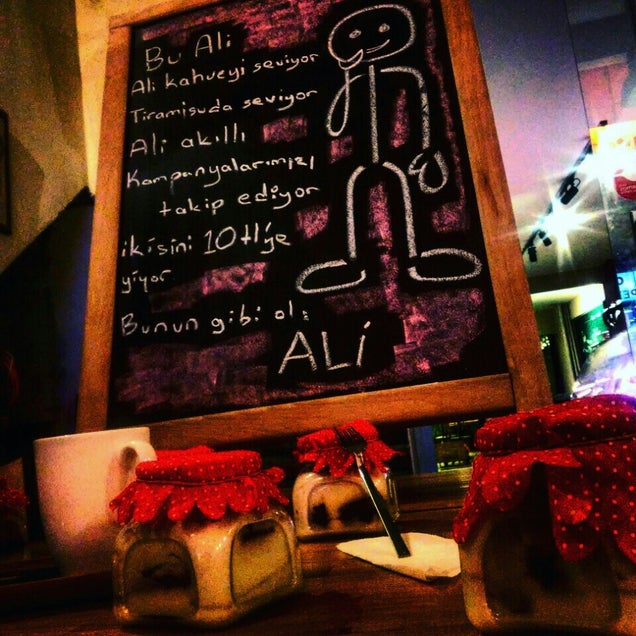 Bu Ali
Ali kahveyi seviyor
Tiramisuda seviyor
Ali akıllı
Kampanyalarımızı
takip ediyor
ikisini 10tl'ye
yiyor
Bunun gibi ol:
ALi